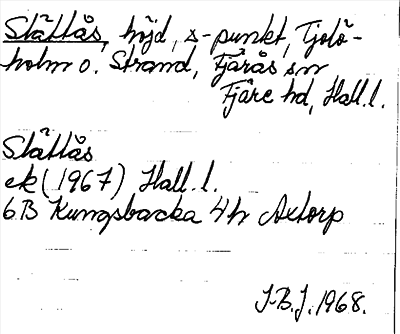 Slättås, höjd, s-punkt, Tjolö-
holm o. Strand, Fjärås sn
Fjäre hd, Hall.l.
Slättås
ek (1967) Hall.l.
6B Kungsbacka 4h Axtorp
J.B.J. 1968.